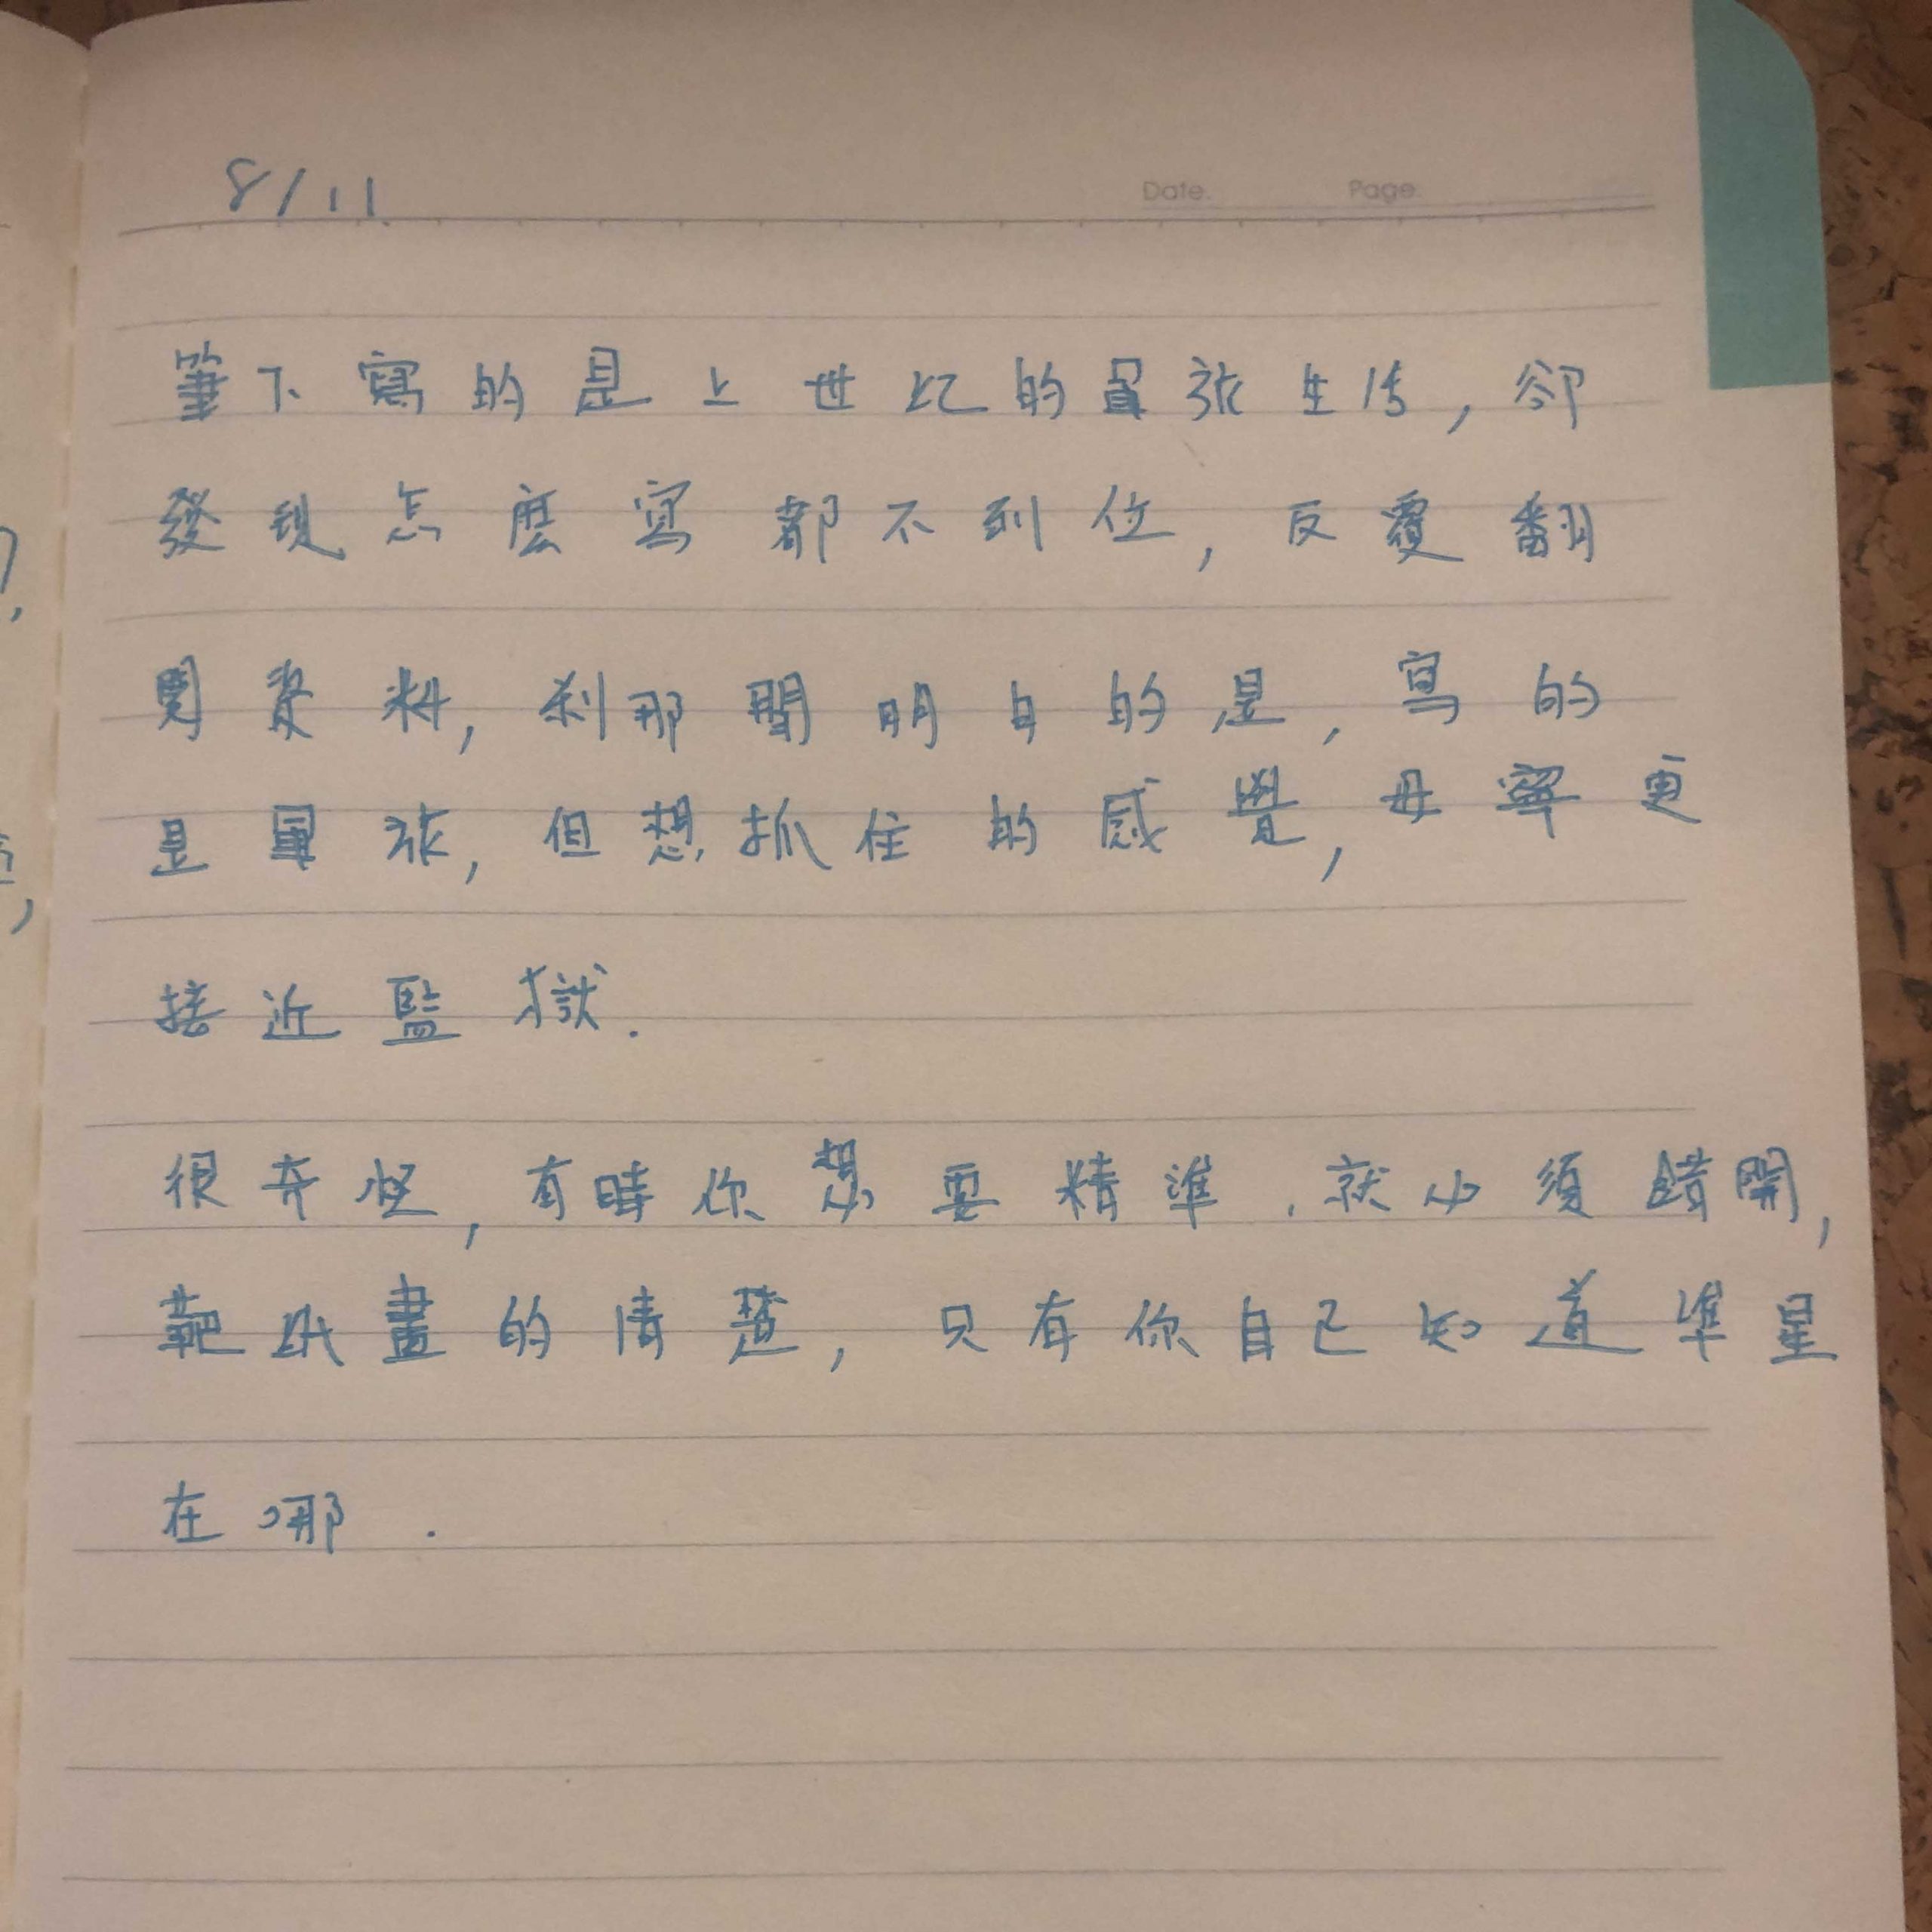 8/11
Date. Page.
筆下寫的是上世紀的軍旅生活,卻
發現怎麼寫都不到位,反覆翻
閱資料,剎那間明白的是,寫的
是軍旅,但想抓住的感覺,毋寧更
接近監獄.
很奇怪,有時你想要精準,就必須錯開,
靶紙畫的清楚,只有你自己知道準星
在哪.